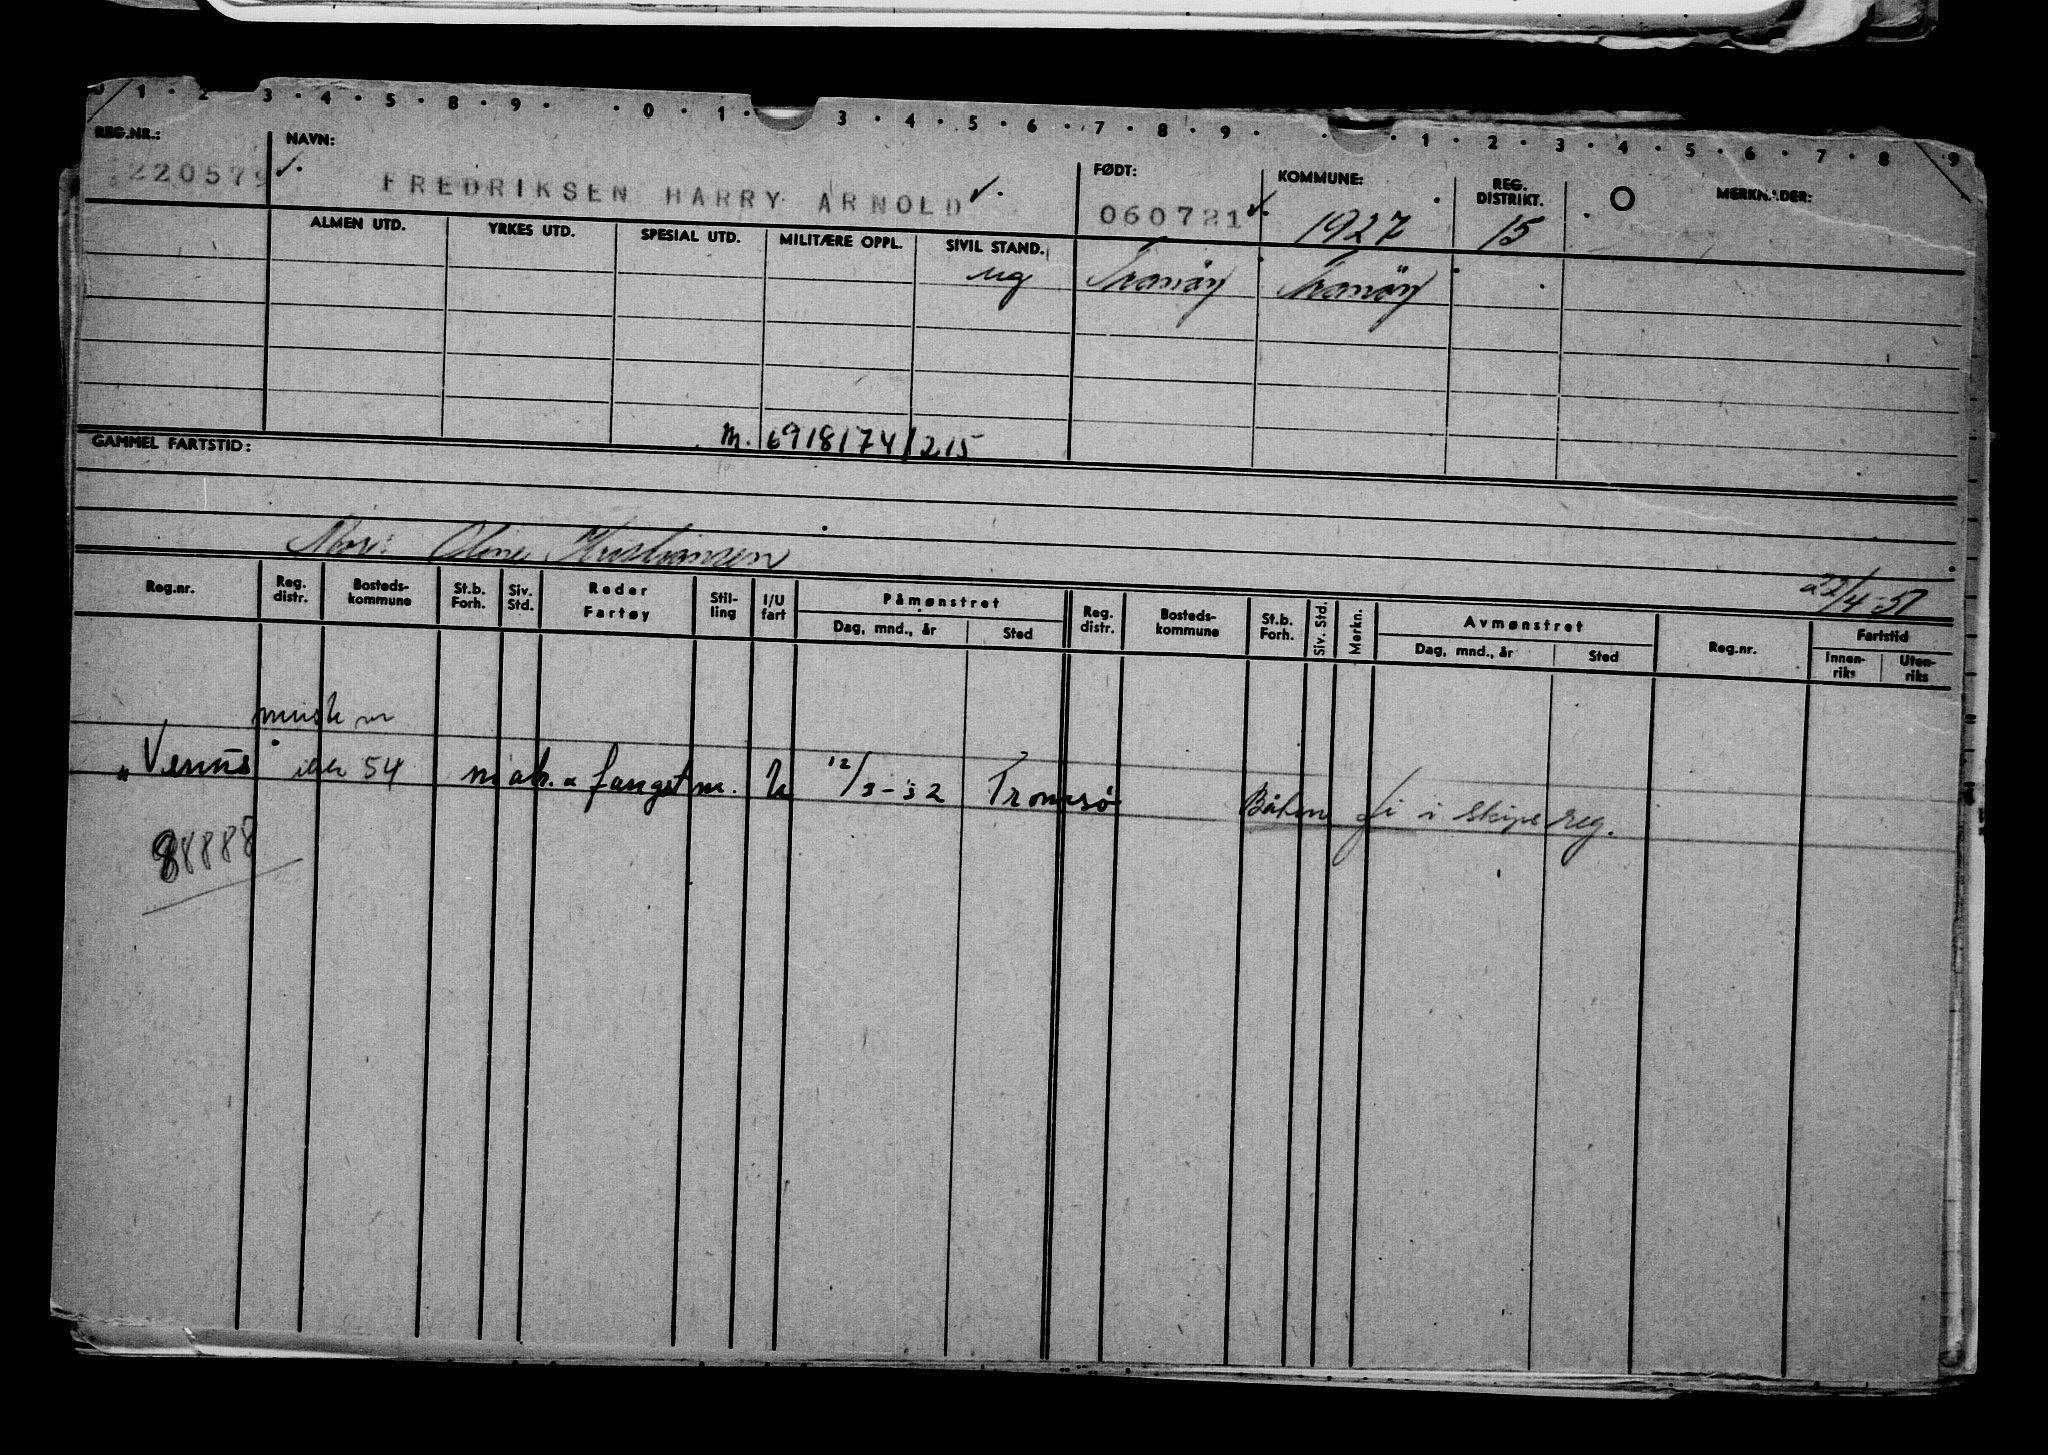 0 1 · 2 3 · 4 · 5 · 8 · 9 · · 0 · 1 · 3 · 4 · 5 · 6 · 7 · 8 · 9 · · 1 · 2 · 3 · 4 · 5 · 6 · 7 · 8 9
REG.NR.: NAVN: FØDT: KOMMUNE: REG. DISTRIKT. MERKNADER:
220579 FREDRIKSEN HARRY ARNOLD 060721 1927 15
ALMEN UTD. YRKES UTD. SPESIAL UTD. MILITÆRE OPPL. SIVIL STAND.
ug Tranöy Tranöy
M. 6918174/215
GAMMEL FARTSTID:
Mor: Oline Kristiansen
22/4-51
Reg.nr. Reg. distr. Bosteds-kommune St.b. Forh. Siv. Std. Reder Fartøy Stil-ling I/U fart Påmønstret Reg. distr. Bosteds-kommune St.b. Forh. Siv. Std. Merkn. Avmønstret Reg.nr. Fartstid
Dag, mnd., år Sted Dag, mnd., år Sted Innen-riks Uten-riks
"Venus" 54 fangstm. U 12/3-52 Tromsø Båten i skipsreg.
88888